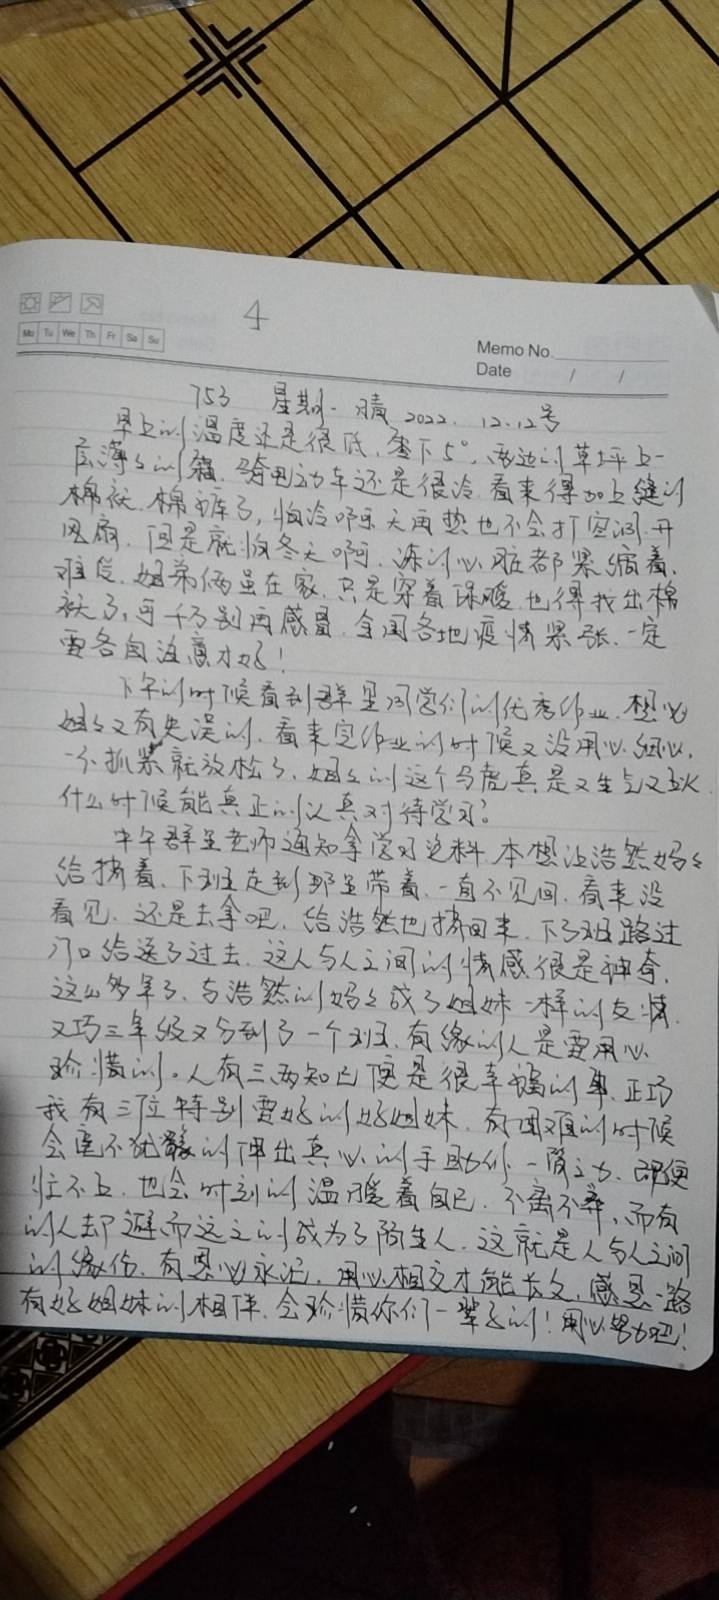 4
Mo Tu We Th Fr Sa Su
Memo No.
Date / /
753 星期一 晴 2022. 12.12号
早上的温度还是很低,零下5°,两边的草坪上一
层薄薄的霜,骑电动车还是很冷,看来得加上缝的
棉袄,棉裤了,怕冷啊乐天再热也不会打空调,开
风扇,但是就怕冬天啊,冻的心脏都紧缩着,
难受,姐弟俩虽在家,只是穿着保暖,也得找出棉
袄了,可千万别再感冒,全国各地疫情紧张,一定
要各自注意才好!
下午的时候看到群里同学们的优秀作业,想必
姐姐又有失误的,看来定作业的时候又没用心,细心,
一不抓紧就放松了,姐姐的这个马虎真是又生气又
什么时候能真正的认真对待学习?
中午群里老师通知拿学习资料,本想让浩然妈妈
给捎着,下班走到那里带着,一直不见回,看来没
看见,还是去拿吧,给浩然也捎回来,下了班路过
门口给送了过去,这人与人之间的情感很是神奇,
这么多年了,与浩然的妈妈成了姐妹一样的友情,
又巧三年级又分到了一个班,有缘的人是要用心
珍惜的。人有三两知己便是很幸福的事,正巧
我有三位特别要好的好姐妹,有困难的时候
会毫不犹豫的伸出真心的手助你一臂之力,即便
忙不上,也会时刻的温暖着自己,不离不弃,而有
的人却避而远之的成为了陌生人,这就是人与人之间
的缘份,有恩必永记,用心相交才能长久,感恩一路
有好姐妹的相伴,会珍惜你们一辈子的!用心努力吧!